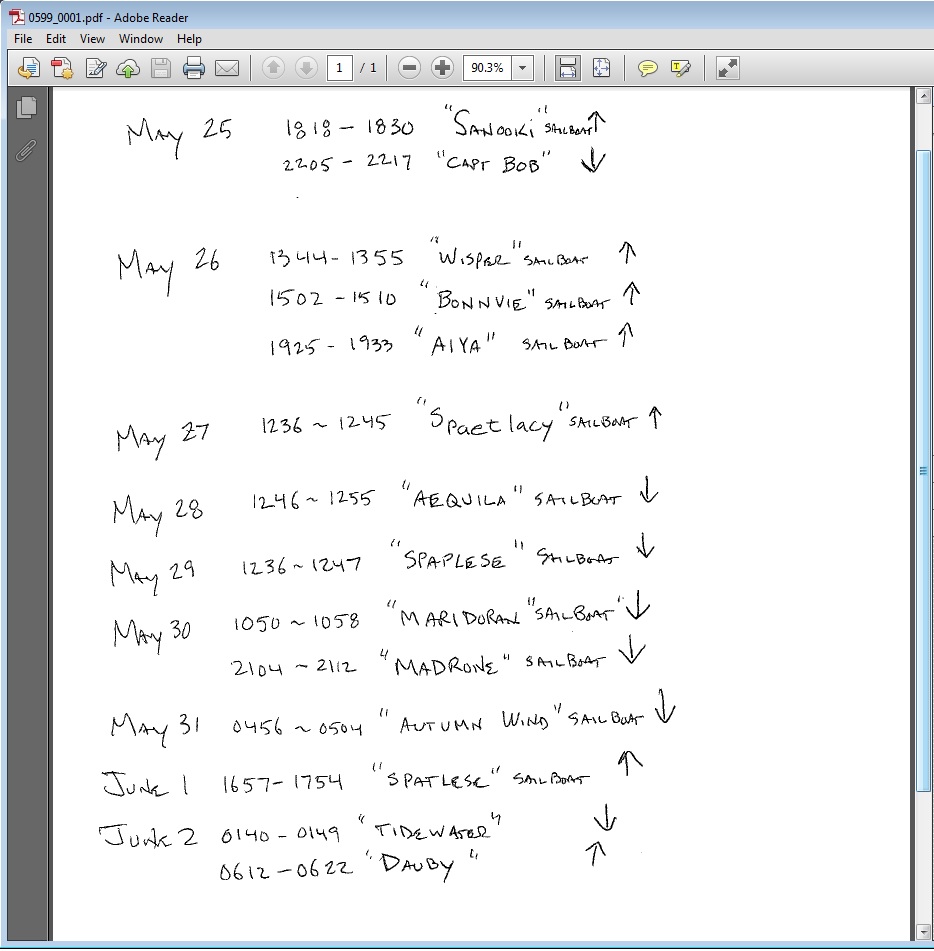 0599_0001.pdf - Adobe Reader
File Edit View Window Help
1 / 1 90.3%
May 25 1818 - 1830 "Sanooki" SAILBOAT ↑
2205 - 2217 "CAPT BOB" ↓
May 26 1344 - 1355 "WISPER" SAILBOAT ↑
1502 - 1510 "BONNVIE" SAILBOAT ↑
1925 - 1933 "AIYA" SAILBOAT ↑
May 27 1236 ~ 1245 "Spaetlacy" SAILBOAT ↑
May 28 1246 ~ 1255 "AEQUILA" SAILBOAT ↓
May 29 1236 ~ 1247 "SPAPLESE" SAILBOAT ↓
May 30 1050 ~ 1058 "MARIDORAN" "SAILBOAT" ↓
2104 ~ 2112 "MADRONE" SAILBOAT ↓
May 31 0456 ~ 0504 "AUTUMN WIND" SAILBOAT ↓
JUNE 1 1657 - 1754 "SPATLESE" SAILBOAT ↑
JUNE 2 0140 - 0149 "TIDEWATER" ↓
0612 - 0622 "DAUBY" ↑